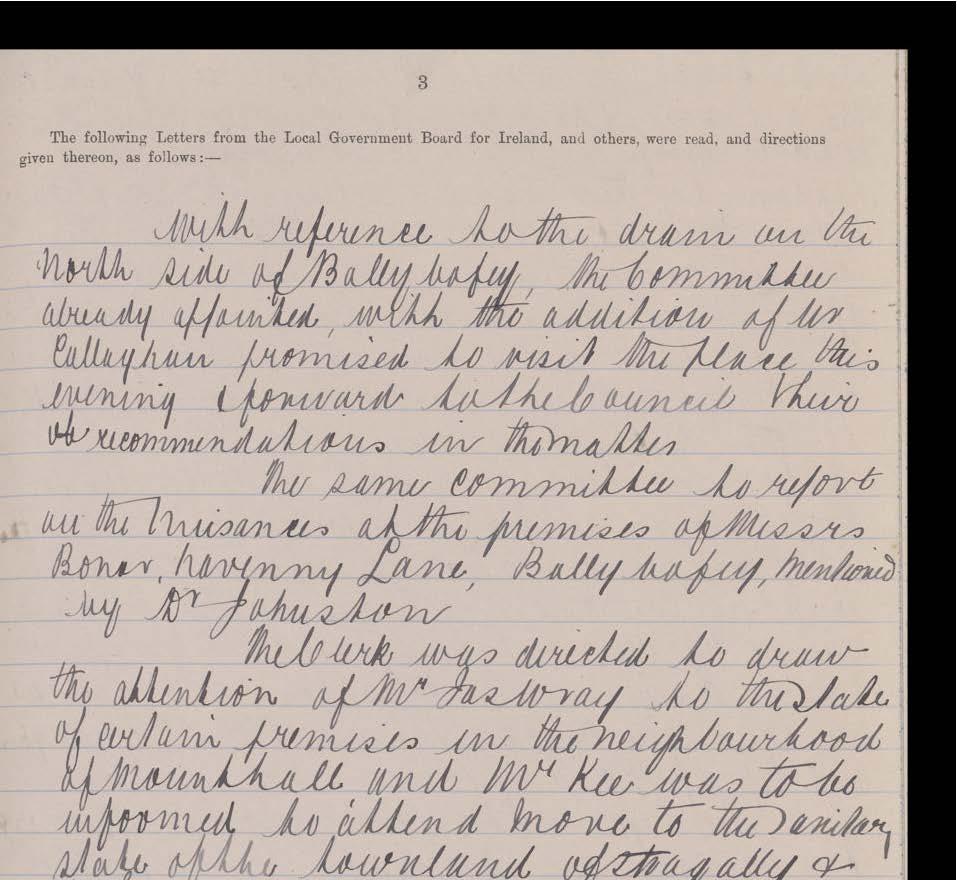 3
The following Letters from the Local Government Board for Ireland, and others, were read, and directions
given thereon, as follows:—
With reference to the drain on the
North side of Ballybofey, the Committee
already appointed, with the addition of Mr
Callaghan promised to visit the place this
evening & forward to the Council their
recommendations in the matter
The same committee to report
on the Nuisances at the premises of Messrs
Bonar, Navenny Lane, Ballybofey, mentioned
by Dr Johnston
The Clerk was directed to draw
the attention of Mr Jas Wray to the state
of certain premises in the neighbourhood
of Mounthall and Mr Kee was to be
informed to attend more to the Sanitary
state of the townland of &